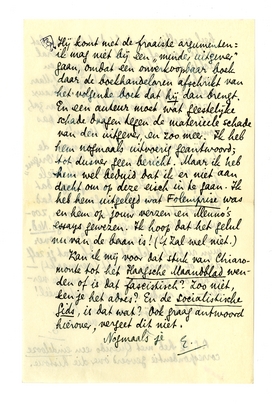 Hij komt met de fraaiste argumenten:
ik mag niet bij een "minder" uitgever
gaan, omdat een onverkoopbaar boek
daar de boekhandelaren afschrikt van
het volgende boek dat hij dan brengt.
En een auteur moet wat geestelijke
schade dragen tegen de materieele schade
van den uitgever, en zoo meer. Ik heb
hem nogmaals uitvoerig geantwoord;
tot dusver geen bericht. Maar ik heb
hem wel beduid dat ik er niet aan
dacht om op deze eisch in te gaan. Ik
heb hem uitgelegd wat Folemprise was
en hem op jouw verzen en Menno's
essays gewezen. Ik hoop dat het gelul
nu van de baan is! ('t Zal wel niet.)
Kan ik mij voor dat stuk van Chiaro-
monte tot het Haagsche Maandblad wen-
den of is dat fascistisch? Zoo niet,
ken je het adres? En de Socialistische
Gids, is dat wat? Ook graag antwoord
hierover, vergeet dit niet.
Nogmaals je
E.